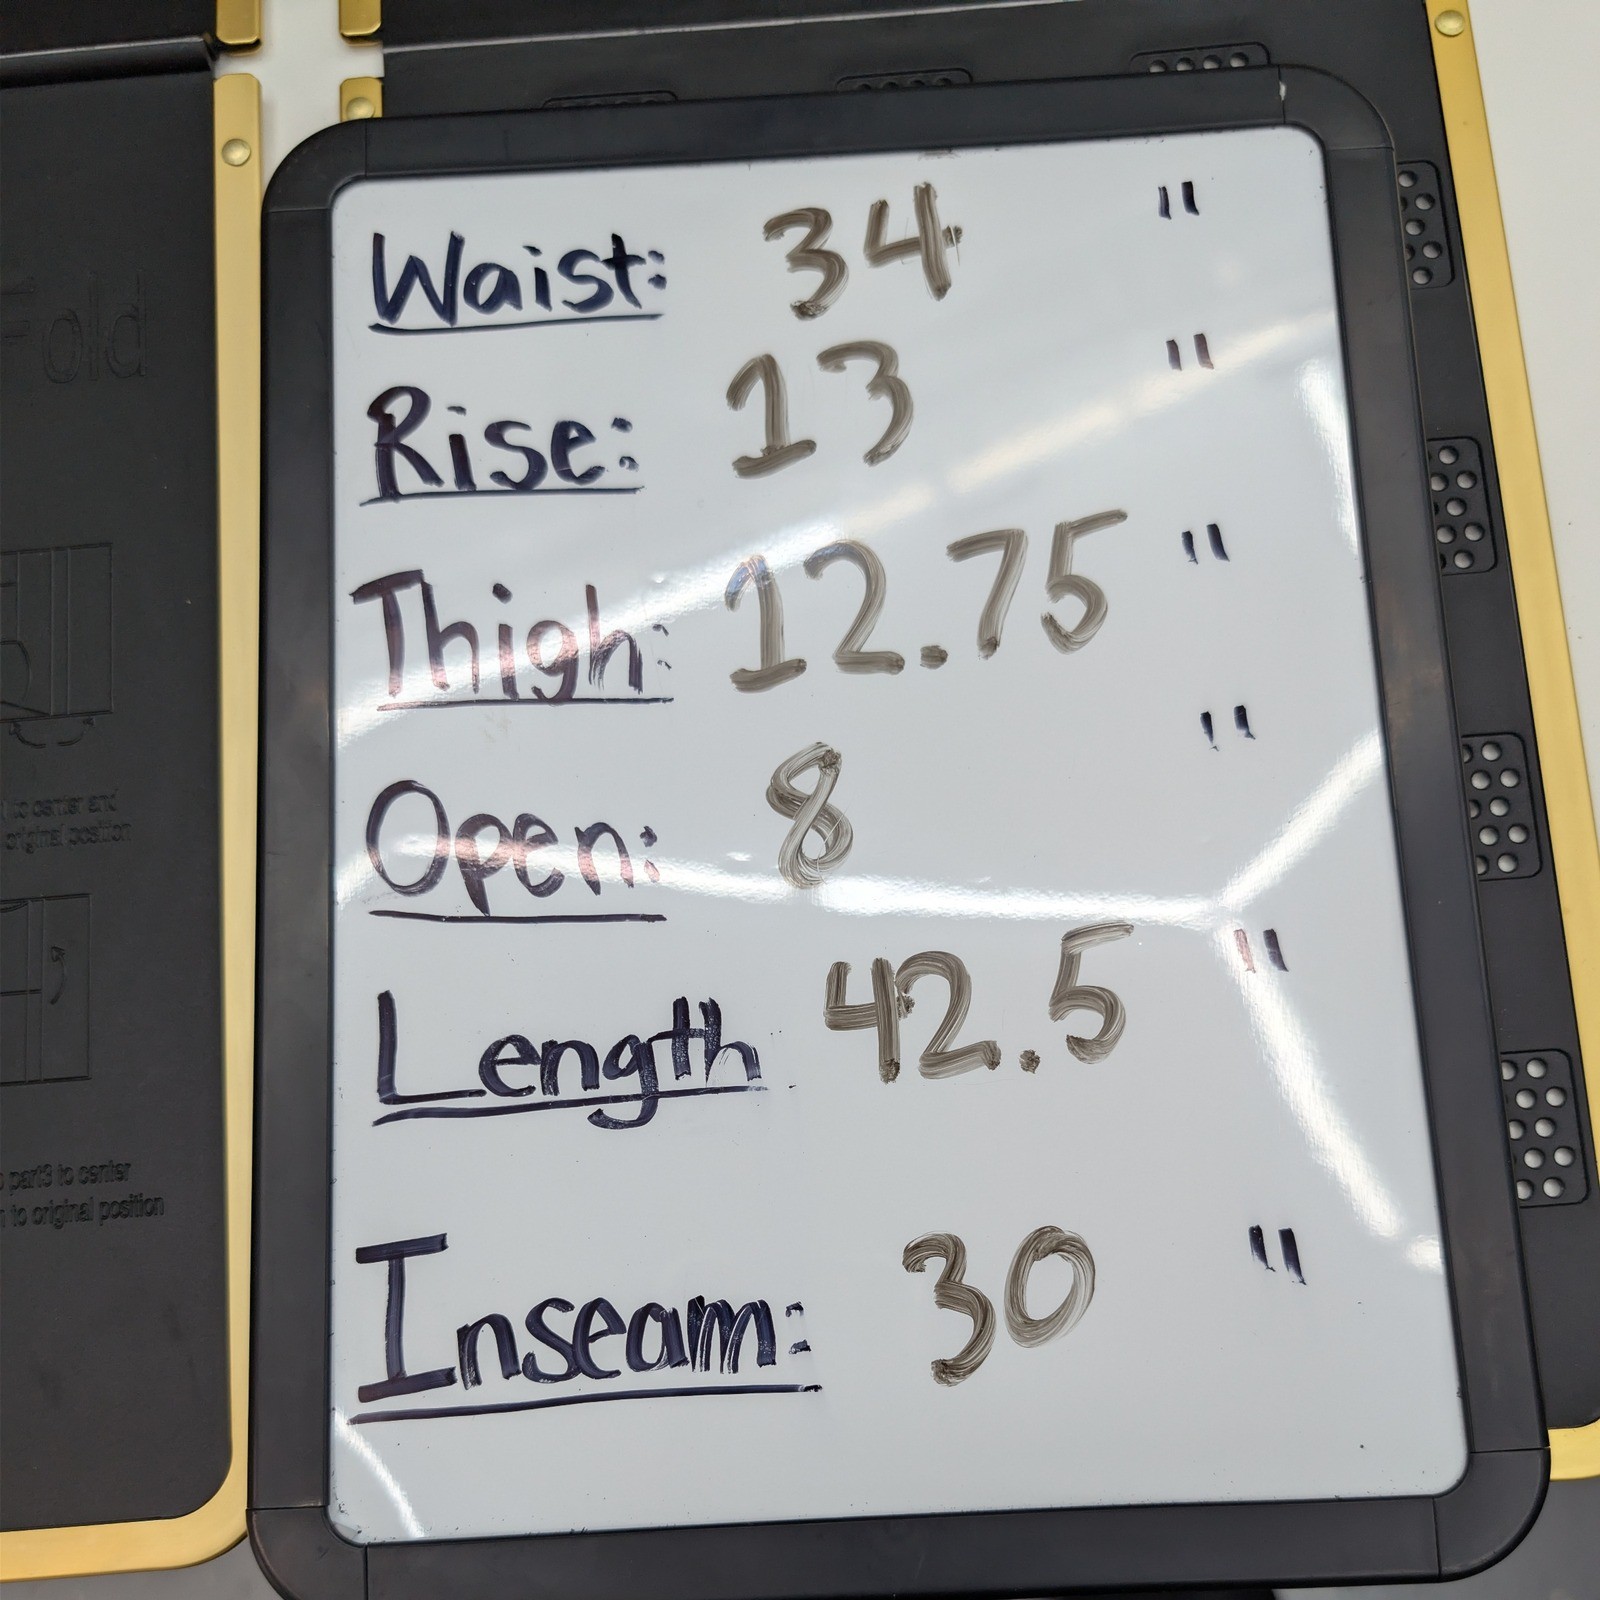 Waist: 34 "
Rise: 13 "
Thigh: 12.75 "
Open: 8 "
Length 42.5 "
Inseam: 30 "
Fold
to center and
original position
part3 to center
to original position